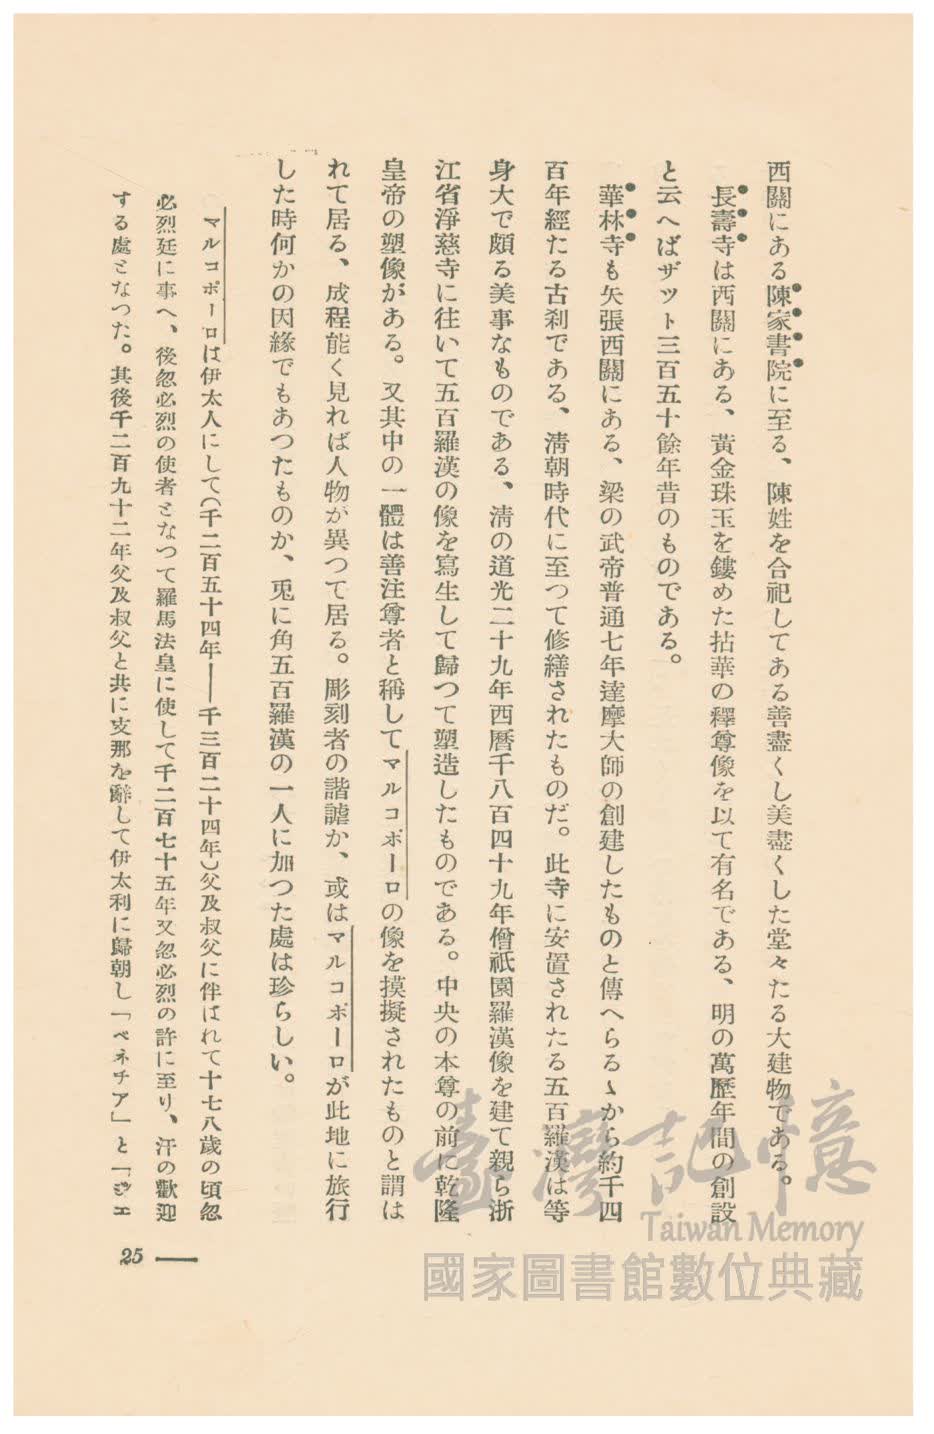 西關にある陳家書院に至る、陳姓を合祀してある善盡くし美盡くした堂々たる大建物である。
長壽寺は西關にある、黃金珠玉を鏤めた拈華の釋尊像を以て有名である、明の萬歷年間の創設
と云へばザット三百五十餘年昔のものである。
華林寺も矢張西關にある、梁の武帝普通七年達摩大師の創建したものと傳へらるゝから約千四
百年經たる古刹である、淸朝時代に至つて修繕されたものだ。此寺に安置されたる五百羅漢は等
身大で頗る美事なものである、淸の道光二十九年西曆千八百四十九年僧祇園羅漢像を建て親ら浙
江省淨慈寺に往いて五百羅漢の像を寫生して歸つて塑造したものである。中央の本尊の前に乾隆
皇帝の塑像がある。又其中の一體は善注尊者と稱してマルコポーロの像を摸擬されたものと謂は
れて居る、成程能く見れば人物が異つて居る。彫刻者の諧謔か、或はマルコポーロが此地に旅行
した時何かの因緣でもあつたものか、兎に角五百羅漢の一人に加つた處は珍らしい。
マルコポーロは伊太人にして(千二百五十四年——千三百二十四年)父及叔父に伴はれて十七八歲の頃忽
必烈廷に事へ、後忽必烈の使者となつて羅馬法皇に使して千二百七十五年又忽必烈の許に至り、汗の歡迎
する處となつた。其後千二百九十二年父及叔父と共に支那を辭して伊太利に歸朝し「ベネチア」と「ジエ
25
臺灣記憶
Taiwan Memory
國家圖書館數位典藏